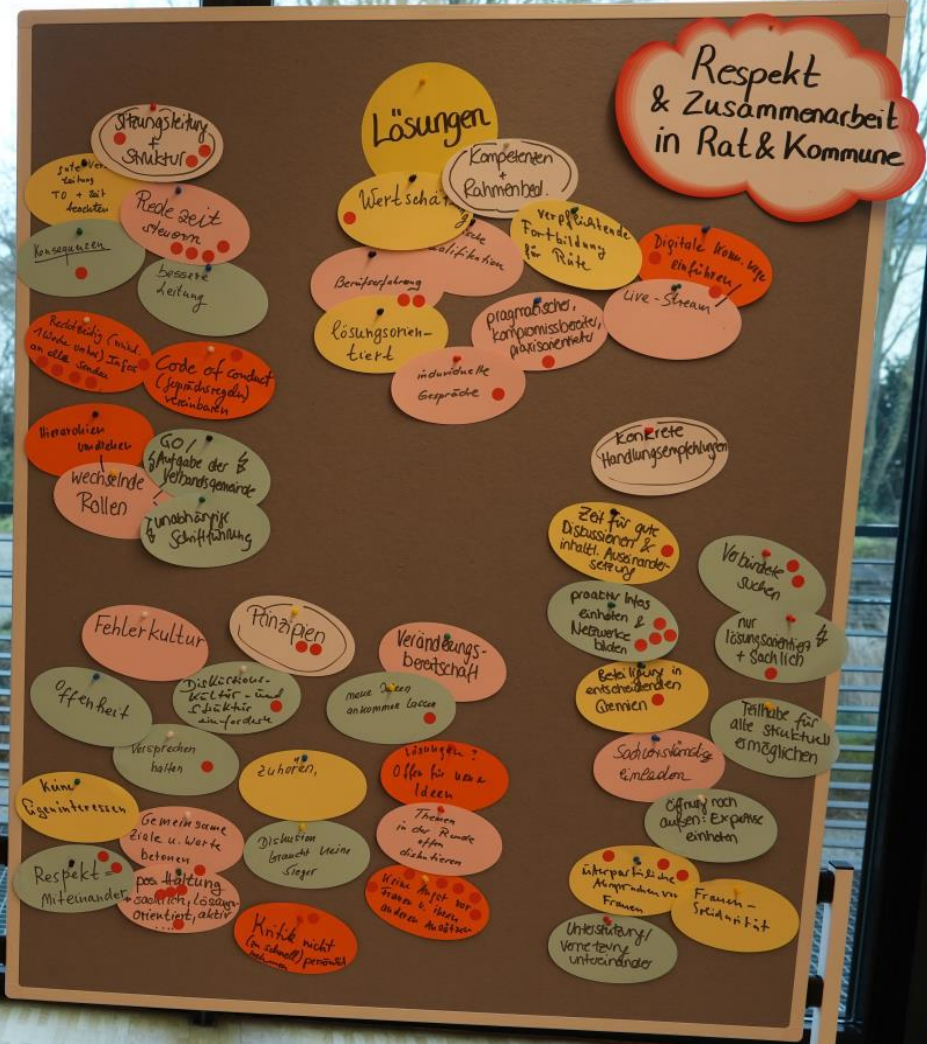 Respekt
& Zusammenarbeit
in Rat & Kommune
Lösungen
Sitzungsleitung
+
Struktur
gute
Leitung
TO + Zeit
beachten
Redezeit
steuern
Konsequenzen
bessere
Leitung
Rechtzeitig (mind.
1 Woche vorher) Infos
an alle senden
Code of conduct
(Gesprächsregeln)
vereinbaren
Hierarchien
umdrehen
wechselnde
Rollen
GO/
Aufgabe der
Verbandsgemeinde
unabhängige
Schriftführung
Kompetenzen
+
Rahmenbed.
Wertschä
g
alifikation
verpflichtende
Fortbildung
für Räte
Digitale Komm.wege
einführen!
Live-Stream
Berufserfahrung
lösungsorien-
tiert
pragmatischer,
kompromissbereiter,
praxisorientierter
individuelle
Gespräche
Konkrete
Handlungsempfehlungen
Zeit für gute
Diskussionen &
inhaltl. Auseinander-
setzung
Verbündete
suchen
proactiv Infos
einholen &
Netzwerke
bilden
nur
lösungsorientiert
+ sachlich
Beteiligung in
entscheidenden
Gremien
Teilhabe für
alle strukturell
ermöglichen
Sachverständige
einladen
Öffnung nach
außen: Expertise
einholen
überparteiliche
Absprachen von
Frauen
Frauen-
Solidarität
Unterstützung/
Vernetzung
untereinander
Fehlerkultur
Prinzipien
Veränderungs-
bereitschaft
Offenheit
Diskussions-
kultur - und
Struktur
einfordern
neue Ideen
ankommen lassen
Versprechen
halten
zuhören,
Lösungen:
Offen für neue
Ideen
Keine
Eigeninteressen
Gemeinsame
Ziele u. Werte
betonen
Diskussion
braucht keine
Sieger
Themen
in der Runde
offen
diskutieren
Respekt =
Miteinander
pos. Haltung
+ sachlich, lösungs-
orientiert, aktiv
....
Keine Angst vor
Frauen u. ihren
anderen Ansätzen
Kritik nicht
(zu schnell) persönlich
nehmen